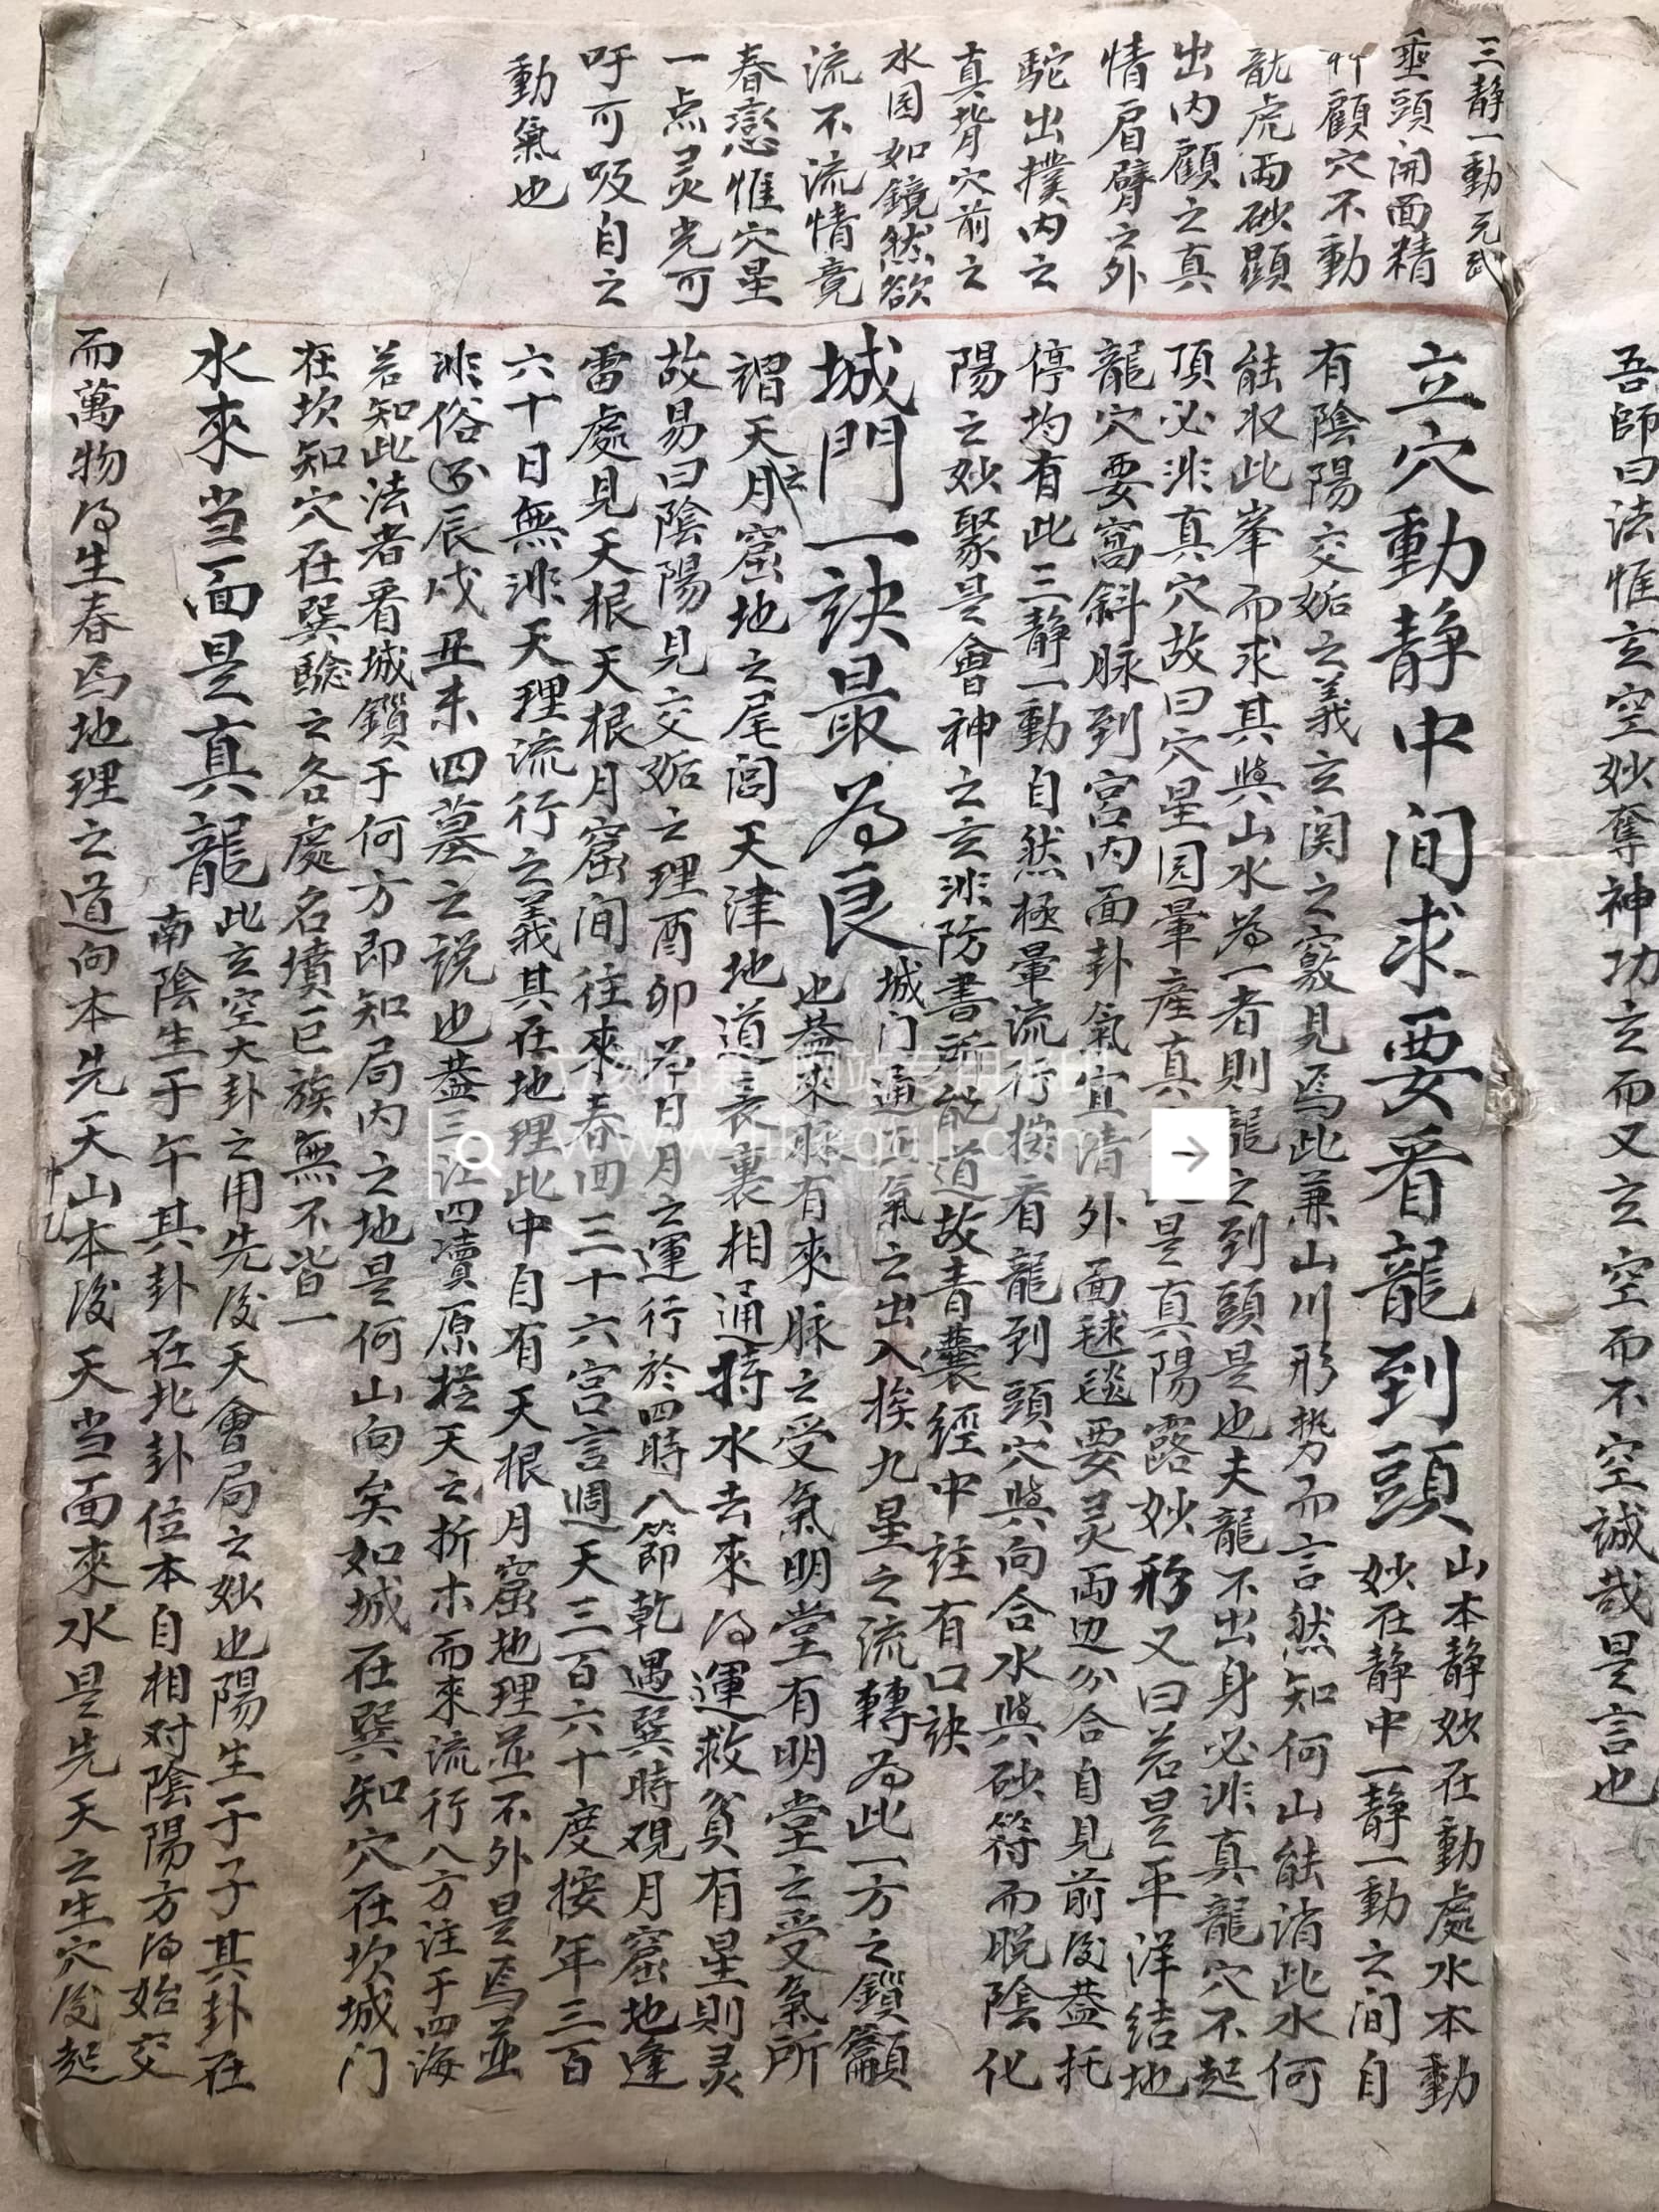 吾師曰法惟玄空妙奪神功玄而又玄空而不空誠哉是言也
三静一動元武
垂頭開面精
神顧穴不動
龍虎兩砂顯
出内顧之真
情眉臂之外
駝出撲内之
真背穴前之
水园如鏡然欲
流不流情竟
春戀惟穴星
一点灵光可
吁可吸自之
動氣也
立穴動静中间求要看龍到頭
山本静妙在動處水本動
妙在静中一静一動之间自
有陰陽交姤之義玄関之竅見焉此兼山川形势而言然知何山能消此水何
能收此峯而求其與山水為一者則龍之到頭是也夫龍不出身必非真龍穴不起
頂必非真穴故曰穴星园暈産真是真陽露妙形又曰若是平洋結地
龍穴要窩斜脉到宮内面卦氣宜清外面毬毯要灵兩边分合自見前後蓋托
停均有此三静一動自然極暈流行按看龍到頭穴與向合水與砂符而脱陰化
陽之妙聚是會神之玄非防書所能道故青囊經中註有口訣
城門一訣最為良
城门通正氣之出入挨九星之流轉為此一方之鎖籲
也蓋來脉有來脉之受氣明堂有明堂之受氣所
謂天月窟地之尾闾天津地道表裏相通持水去來得運救貧有星則灵
玄
故易曰陰陽見交姤之理酉卯為日月之運行於四時八節乾遇巽時覌月窟地逢
雷處見天根天根月窟间往來春四三十六宮言週天三百六十度按年三百
六十日無非天理流行之義其在地理此中自有天根月窟地理並不外是焉並
非俗以辰戍丑未四墓之説也蓋三江四瀆原搓天之折木而來流行八方注于四海
若知此法者看城鎖于何方即知局内之地是何山向矣如城在巽知穴在坎城门
在坎知穴在巽騐之各處名墳巨族無不皆一
水來当面是真龍
此玄空大卦之用先後天會局之妙也陽生于子其卦在
南陰生于午其卦在北卦位本自相对陰陽方得始交
而萬物得生春焉地理之道向本先天山本後天当面來水是先天之生穴後起